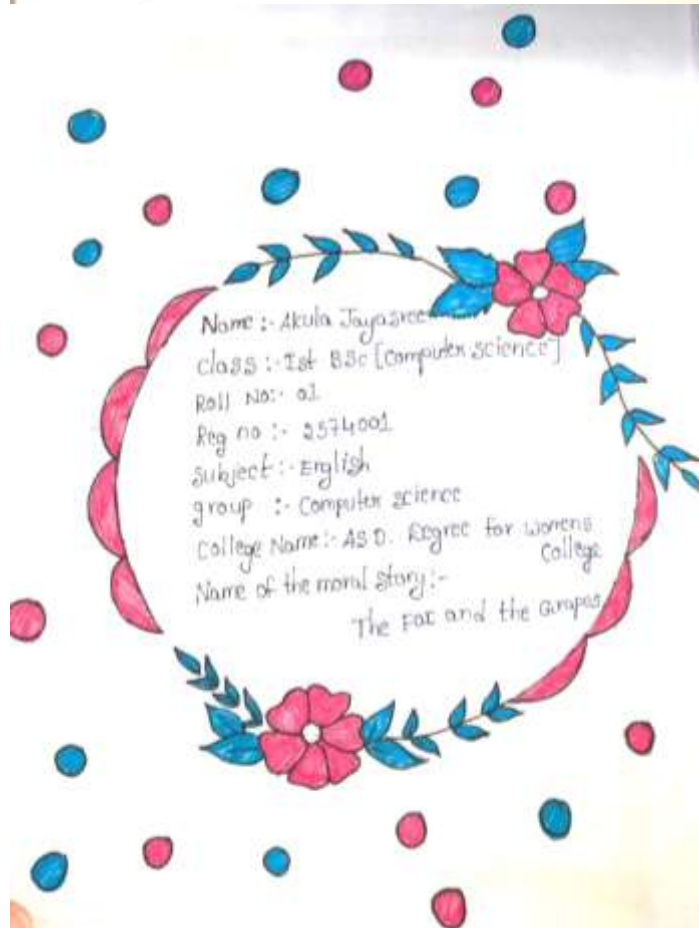 Name :- Akula Jayasree
class :- Ist BSc [Computer science]
Roll No:- 01
Reg no :- 2574001
subject :- English
group :- Computer science
College Name:- AS D. Degree for womens
College
Name of the moral story:-
The Fox and the Grapes